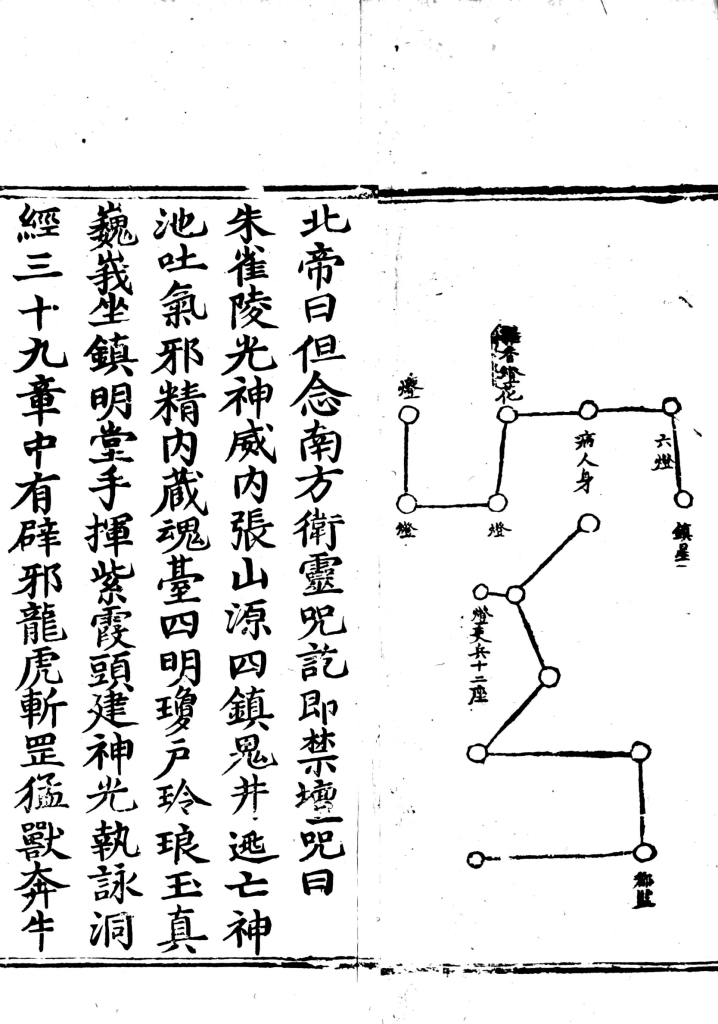 香燈花
六燈
鎮星
病人身
燈
燈
燈
燈吏兵十二座
都監
北帝曰但念南方衛靈咒訖即禁壇咒曰
朱雀陵光神威内張山源四鎮鬼井逃亡神
池吐氣邪精内藏魂臺四明瓊戶玲琅玉真
巍峩坐鎮明堂手揮紫霞頭建神光執詠洞
經三十九章中有辟邪龍虎斬罡猛獸奔牛